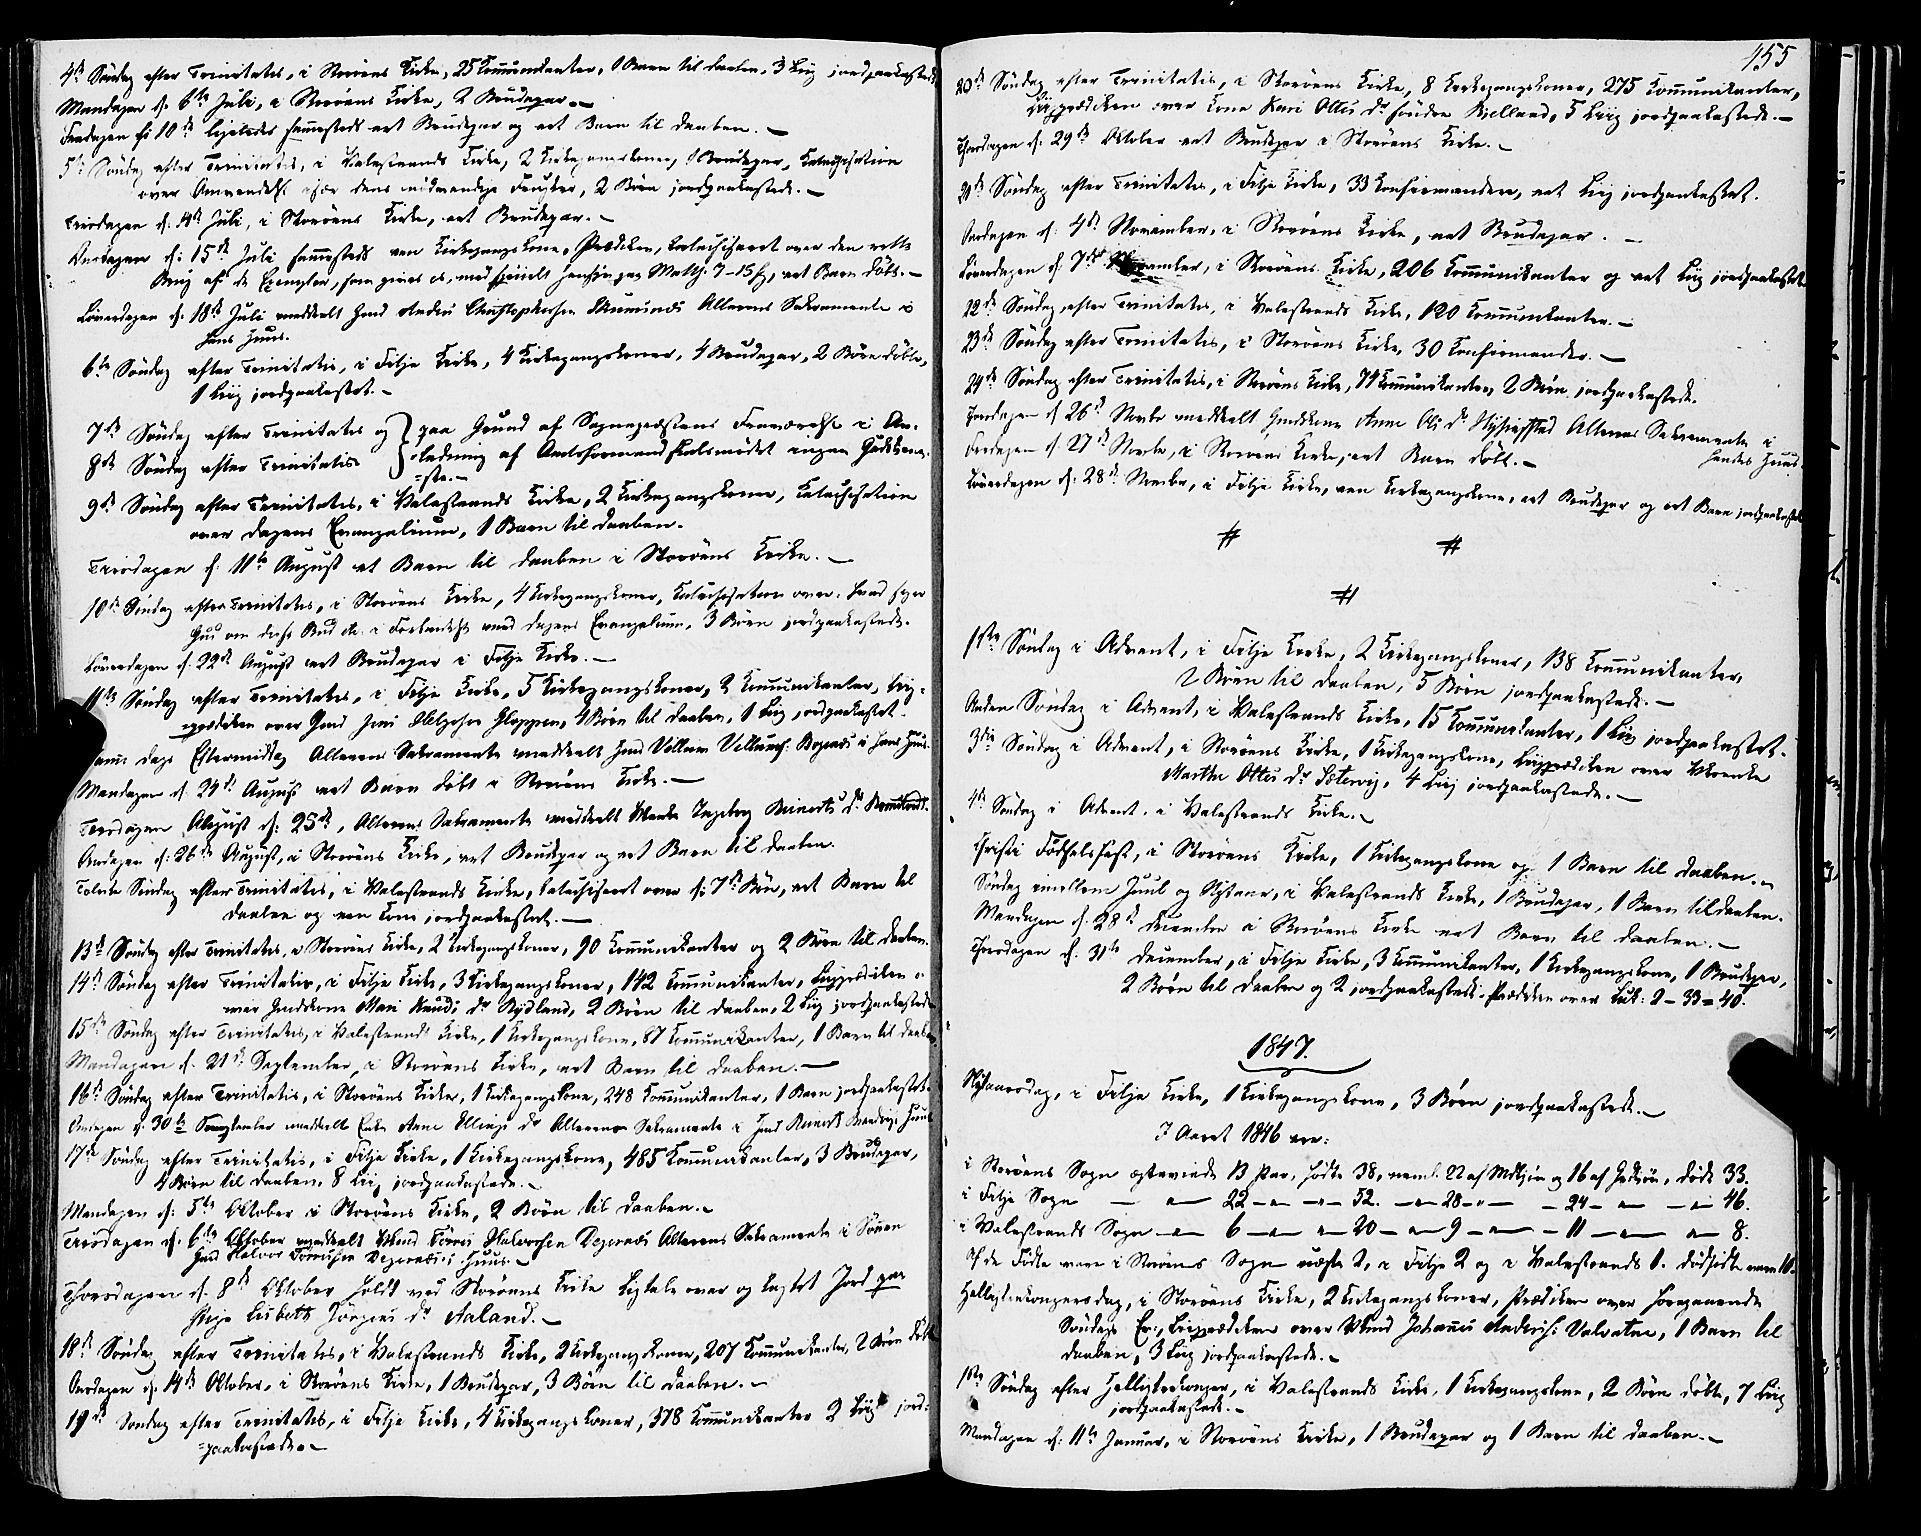 4de Søndag efter Trinitatis, i Storöens Kirke, 25 Kommunikanter, 1 Barn til Daaben, 3 Liig jordpaakastede
Mandagen d. 6te Juli, i Storöens Kirke, 2 Brudepar.
Fredagen d: 10de ligeledes sammesteds eet Brudepar og eet Barn til Daaben.
5te Søndag efter Trinitatis, i Valestrands Kirke, 2 Kirkegangskoner, 1 Brudepar, Katechisation
over Omvendelse især dens nødvendige Frugter, 2 Börn jordpaakastede.
Tirsdagen d. 14de Juli, i Storöens Kirke, eet Brudepar.
Onsdagen d: 15de Juli sammesteds een Kirkegangskone, Prædiken, katechiseret over den rette
Brug af de Exempler, som gives os, med specielt Hensyn paa Matth. 7-15 f, eet Barn döbt.
Löverdagen d: 18de Juli meddeelt Gmd Anders Christophersen Alterens Sakramente i
hans Huus.
6te Søndag efter Trinitatis, i Fitje Kirke, 4 Kirkegangskoner, 4 Brudepar, 2 Börn döbte,
1 Liig jordpaakastet.
7de Søndag efter Trinitatis og paa Grund af Sognepræstens Fraværelse i An-
8de Søndag efter Trinitatis ledning af Amtsformandskabsmödet ingen Gudstjene-
ste.
9de Søndag efter Trinitatis, i Valestrands Kirke, 2 Kirkegangskoner, Katechisation
over Dagens Evangelium, 1 Barn til Daaben.
Tirsdagen d: 11te August et Barn til Daaben i Storöens Kirke.
10de Søndag efter Trinitatis, i Storöens Kirke, 4 Kirkegangskoner, Katechisation over: hvad siger
Gud om disse Bud etc. i Forbindelse med Dagens Evangelium, 3 Börn jordpaakastede.
Löverdagen d. 22de August eet Brudepar i Fitje Kirke.
11te Søndag efter Trinitatis, i Fitje Kirke, 5 Kirkegangskoner, 2 Kommunikanter, Liig-
prædiken over Gmd Joni Helgesen Gloppen, 4 Börn til Daaben, 1 Liig jordpaakastet.
samme Dags Eftermiddag Alterens Sakramente meddeelt Gmd Villum Villums: i hans Huus.
Mandagen d. 24de August eet Barn döbt i Storöens Kirke.
Tirsdagen August d: 25de, Alterens Sakramente meddeelt Ingeborg Reinerts Dr
Onsdagen d: 26de August, i Storöens Kirke, eet Brudepar og eet Barn til Daaben.
Tolvte Søndag efter Trinitatis, i Valestrands Kirke, katechiseret over d: 7de Bön, eet Barn til
Daaben og een Kone jordpaakastet.
13de Søndag efter Trinitatis, i Storöens Kirke, 2 Kirkegangskoner, 90 Kommunikanter og 2 Börn til Daaben.
14de Søndag efter Trinitatis, i Fitje Kirke, 3 Kirkegangskoner, 142 Kommunikanter, Liigprædiken
over Gmdskone Mari Knuds Dr Rydland, 2 Börn til Daaben, 2 Liig jordpaakastede
15de Søndag efter Trinitatis, i Valestrands Kirke, 1 Kirkegangskone, 87 Kommunikanter, 1 Barn til Daaben
Mandagen d. 21de September, i Storöens Kirke, eet Barn til Daaben.
16de Søndag efter Trinitatis, i Storöens Kirke, 1 Kirkegangskone, 248 Kommunikanter, 1 Barn jordpaakastet.
Onsdagen d: 30te September meddeelt Enke Anne Ellings Dr Alterens Sakramente i Gmd Huus
17de Søndag efter Trinitatis, i Fitje Kirke, 1 Kirkegangskone, 485 Kommunikanter, 3 Brudepar,
4 Börn til Daaben, 8 Liig jordpaakastede.
Mandagen d: 5te Oktober i Storöens Kirke, 2 Börn til Daaben.
Tirsdagen d. 6te Oktober meddeelt Törris Halvorsen Alterens Sakramente i Sönen
Gmd Halvor Törrisen Huus.
Thorsdagen d. 8de Oktober holdt ved Storöens Kirke Ligtale over og kastet Jord paa
Pige Lisbeth Jörgens Dr Aaland.
18de Søndag efter Trinitatis, i Valestrands Kirke, 2 Kirkegangskoner, 207 Kommunikanter, 2 Börn döbte
Onsdagen d. 14de Oktober, i Storöens Kirke, 1 Brudepar, 3 Börn til Daaben.
19de Søndag efter Trinitatis, i Fitje Kirke, 4 Kirkegangskoner, 378 Kommunikanter 2 Liig jord-
paakastede.
155
20de Søndag efter Trinitatis, i Storöens Kirke, 8 Kirkegangskoner, 275 Kommunikanter,
Liigprædiken over Kone Kari Ottes Dr söndre Bielland, 5 Liig jordpaakastede.
Thorsdagen d. 29de Oktober eet Brudepar i Storöens Kirke.
21de Søndag efter Trinitatis, i Fitje Kirke, 33 Konfirmandere, eet Liig jordpaakastet.
Onsdagen d: 4de November, i Storöens Kirke, eet Brudepar.
Löverdagen d. 7de November, i Storöens Kirke, 206 Kommunikanter og eet Liig jordpaakastet
22de Søndag efter Trinitatis, i Valestrands Kirke, 120 Kommunikanter.
23de Søndag efter Trinitatis, i Storöens Kirke, 30 Konfirmander.
24de Søndag efter Trinitatis, i Storöens Kirke, 74 Kommunikanter, 2 Börn jordpaakastede.
Torsdagen d 26de Novbr meddeelt Gmdskone Anne Ols Dr Alterens Sakramente i
hendes Huus.
Fredagen d. 27de Novbr, i Storöens Kirke, eet Barn döbt.
Löverdagen d: 28de Novbr, i Fitje Kirke, een Kirkegangskone, eet Brudepar og eet Barn jordpaakastet
# #
#
1ste Søndag i Advent, i Fitje Kirke, 2 Kirkegangskoner, 138 Kommunikanter,
2 Börn til Daaben, 5 Börn jordpaakastede.
Anden Søndag i Advent, i Valestrands Kirke, 15 Kommunikanter, 1 Liig jordpaakastet.
3die Søndag i Advent, i Storöens Kirke, 1 Kirkegangskone, Liigprædiken over Enke
Marthe Ottes Dr, 4 Liig jordpaakastede.
4de Søndag i Advent, i Valestrands Kirke.
Christi Födselsfest, i Storöens Kirke, 1 Kirkegangskone og 1 Barn til Daaben.
Søndag imellem Juul og Nytaar, i Valestrands Kirke, 1 Brudepar, 1 Barn til Daaben.
Mandagen d. 28de December i Storöens Kirke eet Barn til Daaben.
Thorsdagen d. 31te December, i Fitje Kirke, 3 Kommunikanter, 1 Kirkegangskone, 1 Brudepar,
2 Börn til Daaben og 2 jordpaakastede. Prædiken over Luk: 2-33-40.
1847.
Nytaarsdag, i Fitje Kirke, 1 Kirkegangskone, 3 Börn jordpaakastede.
I Aaret 1846 ere:
i Storöens Sogn egteviede 13 Par, födte 38, neml. 22 af Mdkjön og 16 af Qvkjön, döde 33.
i Fitje Sogn — — 22 — — 52. — 28 — — 24 — — 46.
i Valestrands Sogn — 6 — — 20 — 9 — — 11 — — 8.
Af de Födte vare i Storöens Sogn uægte 2, i Fitje 2 og i Valestrands 1. dödfödte vare 10.
Helligtrekongersdag, i Storöens Kirke, 2 Kirkegangskoner, Prædiken over foregaaende
Søndags Ev:, Liigprædiken over Johannes Anders: Valvatne, 1 Barn til
Daaben, 3 Liig jordpaakastede.
1ste Søndag efter Helligtrekonger, i Valestrands Kirke, 1 Kirkegangskone, 2 Börn döbte, 7 Liig
jordpaakastede.
Mandagen d: 11te Januar, i Storöens Kirke, 1 Brudepar og 1 Barn til Daaben.